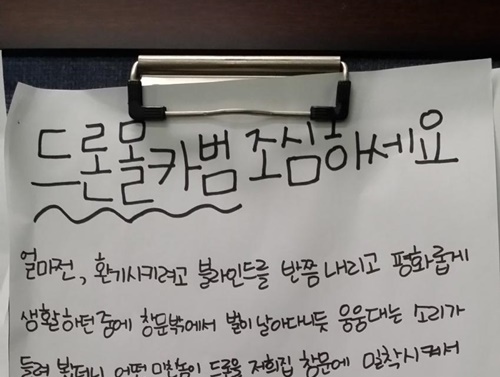 드론몰카범 조심하세요
얼마전, 환기시키려고 블라인드를 반쯤 내리고 평화롭게
생활하던 중에 창문밖에서 벌이 날아다니듯 웅웅대는 소리가
들려 봤더니 어떤 미친놈이 드론을 저희집 창문에 밀착시켜서